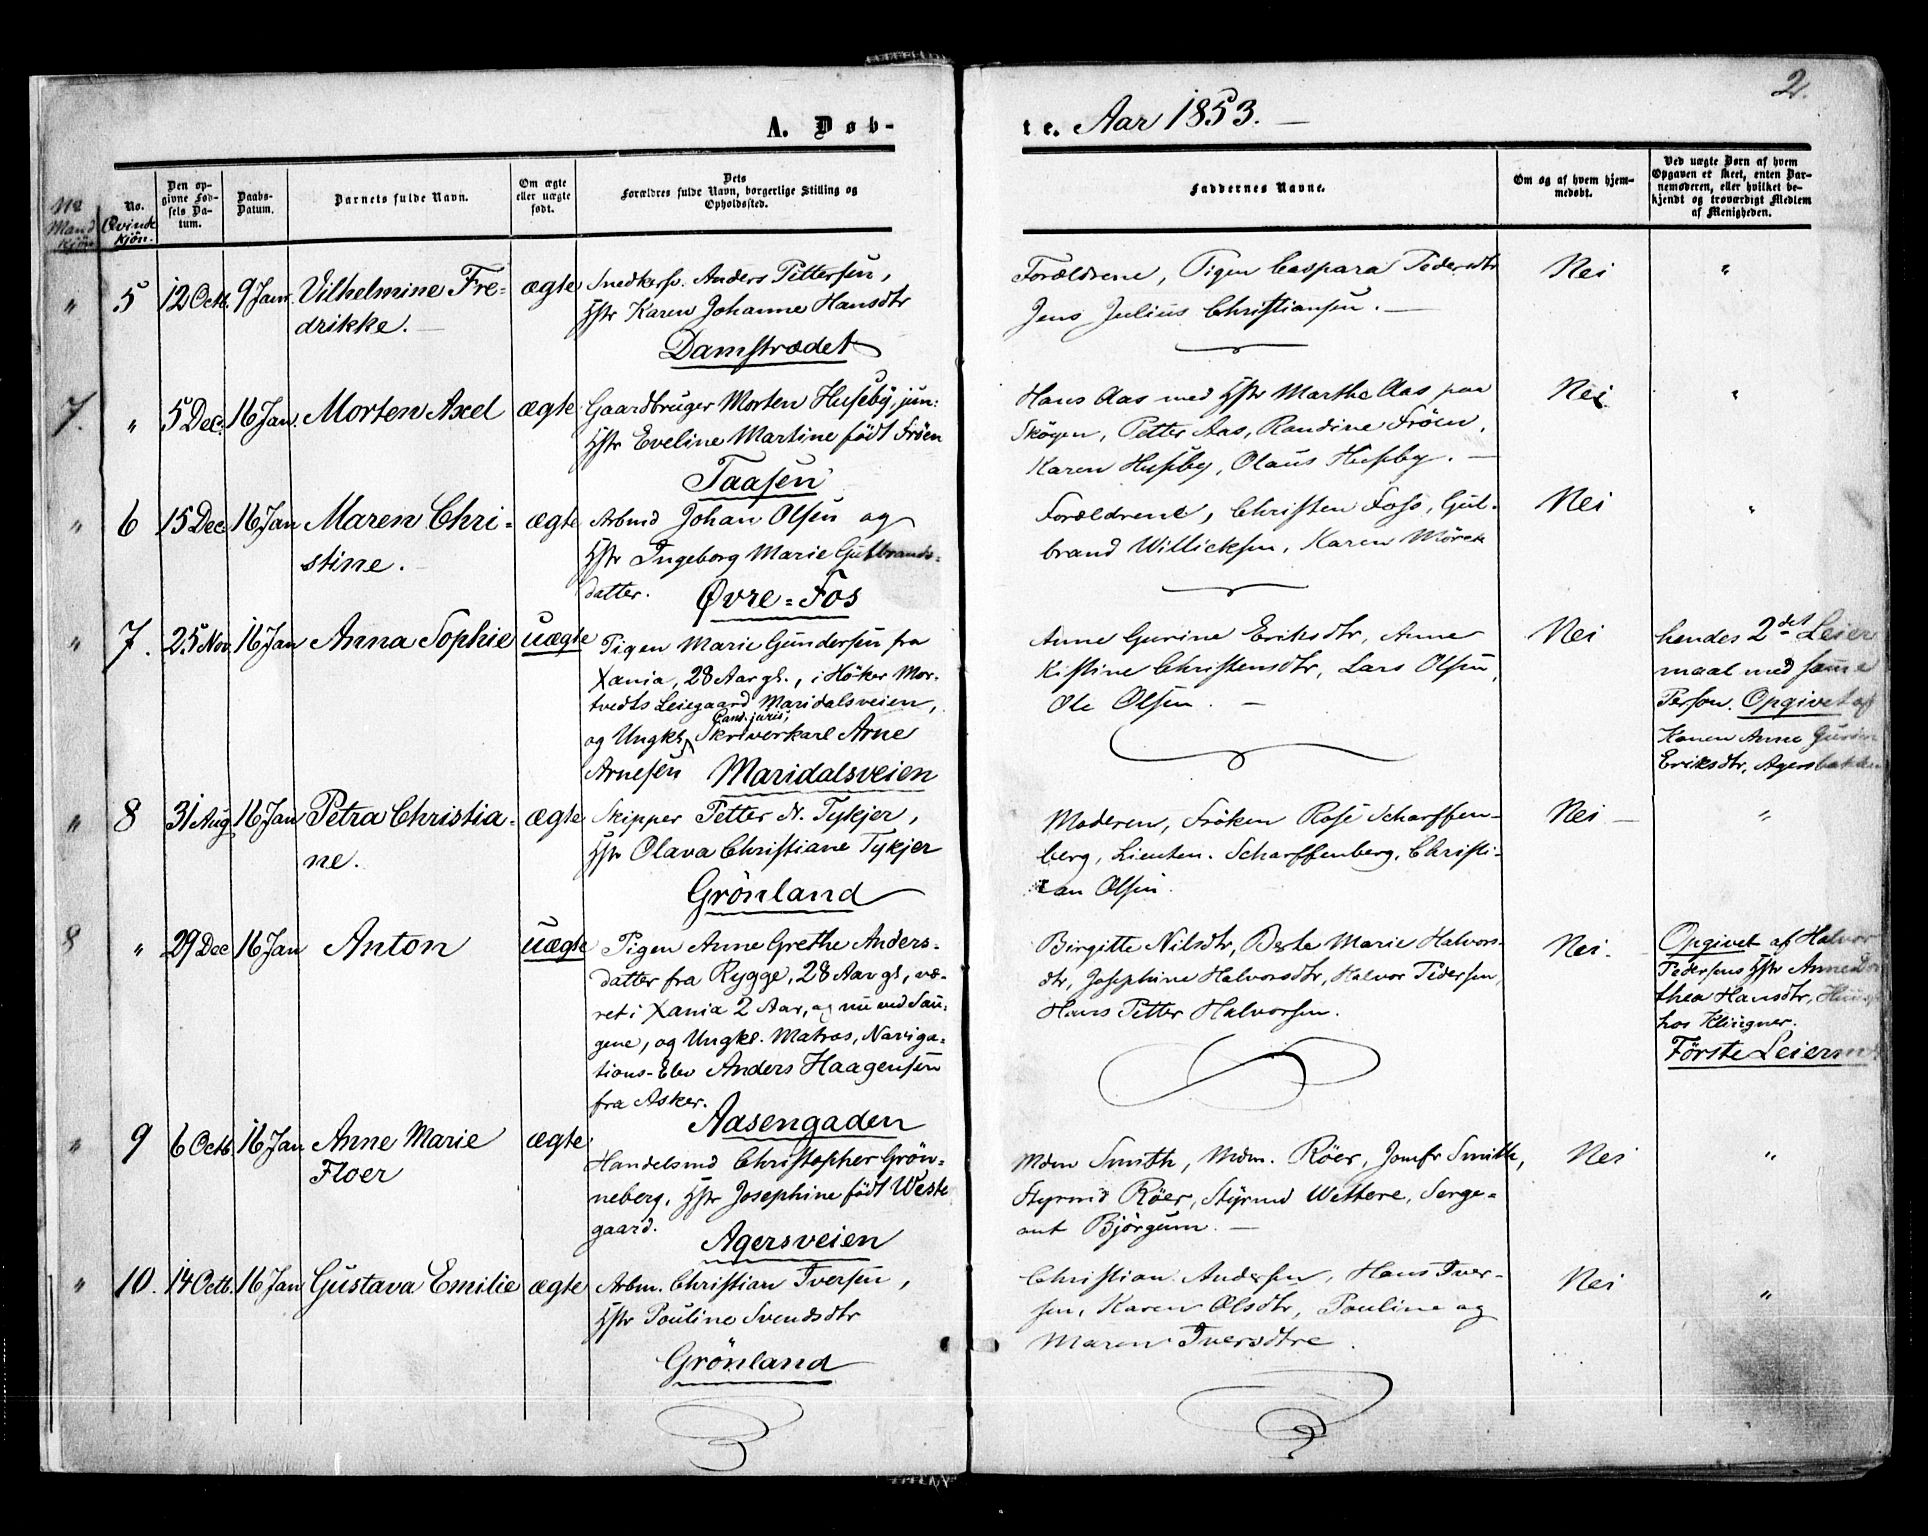 2.
A. Døb-
te. Aar 1853. —
No Mandkjön
No. Qvindekjön.
Den opgivne Fødsels Datum.
Daabs-Datum.
Barnets fulde Navn.
Om ægte eller uægte født.
Dets Forældres fulde Navn, borgerlige Stilling og Opholdssted.
Faddernes Navne.
Om og af hvem hjemmedøbt.
Ved uægte Børn af hvem Opgaven er skeet, enten Barnemoderen, eller hvilket bekjendt og troværdigt Medlem af Menigheden.
" 5 12 Octb. 9 Janr. Vilhelmine Fre-
drikke. —
ægte
Snedkersv. Anders Pettersen,
Hstr Karen Johanne Hansdtr
Damstrædet
Forældrene, Pigen Caspara Pedersdtr
Jens Julius Christiansen. —
Nei
"
7. " 5 Dec. 16 Jan. Morten Axel
ægte
Gaardbruger Morten Huseby, jun:
Hstr Eveline Martine født Fröen
Taasen
Hans Aas med Hstr Marthe Aas paa
Skögen, Petter Aas, Randine Fröen,
Karen Huseby, Olaus Huseby. —
Nei
"
" 6 15 Dec 16 Jan Maren Chri-
stine. —
ægte
Arbmd Johan Olsen og
Hstr Ingeborg Marie Gulbrands-
datter. Øvre-Fos
Forældrene, Christen Foss, Gul-
brand Willicksen, Karen Mörck
Nei
"
" 7. 25 Nov. 16 Jan Anna Sophie
uægte
Pigen Marie Gundersen fra
Xania, 28 Aar gl., i Höker Mor-
tvedts Leiegaard Maridalsveien,
Cand. juris,
og Ungkl. Skriverkarl Arne
Arnesen Maridalsveien
Anne Gurine Eriksdtr, Anne
Kistine Christensdtr, Lars Olsen,
Ole Olsen. —
Nei
hendes 2det Leier
maal med samme
Person. Opgivet af
Konen Anne Gurin
Eriksdtr, Agersbakken
" 8 31 Aug. 16 Jan Petra Christia-
ne.
ægte
Skipper Petter N. Tykjer,
Hstr Olava Christiane Tykjer
Grönland
Moderen, Fröken Rose Scharffen-
berg, Lieuten. Scharffenberg, Christi-
an Olsen.
Nei —
"
8 " 29 Dec 16 Jan Anton
uægte
Pigen Anne Grethe Anders-
datter fra Rygge, 28 Aar gl, væ-
ret i Xania 2 Aar, og nu ved Sau-
gene, og Ungkl. Matros, Naviga-
tions-Elev Anders Haagensen
fra Asker. Aasengaden
Birgitte Nilsdtr, Berte Marie Halvors-
dtr, Josephine Halvorsdtr, Halvor Pedersen,
Hans Petter Halvorsen.
Nei
Opgivet af Halvor
Pedersens Hstr Anne Do
thea Hansdtr,
hos Klingner.
Förste Leierm
" 9 6 Octb. 16 Jan Anne Marie
Floer
ægte
Handelsmd Christopher Grön-
neberg, Hstr Josephine født Weste
gaard.
Agersveien
Mdm Smith, Mdm. Röer, Jomfr Smith,
Styrmd Röer, Styrmd Wettere, Serge-
ant Björgum. —
Nei
"
" 10. 14 Octb. 16 Jan Gustava Emilie
ægte
Arbm. Christian Iversen,
Hstr Pouline Svendsdtr
Grönland
Christian Andersen, Hans Iver-
sen, Karen Olsdtr, Pouline og
Maren Iversdtre.
Nei
"